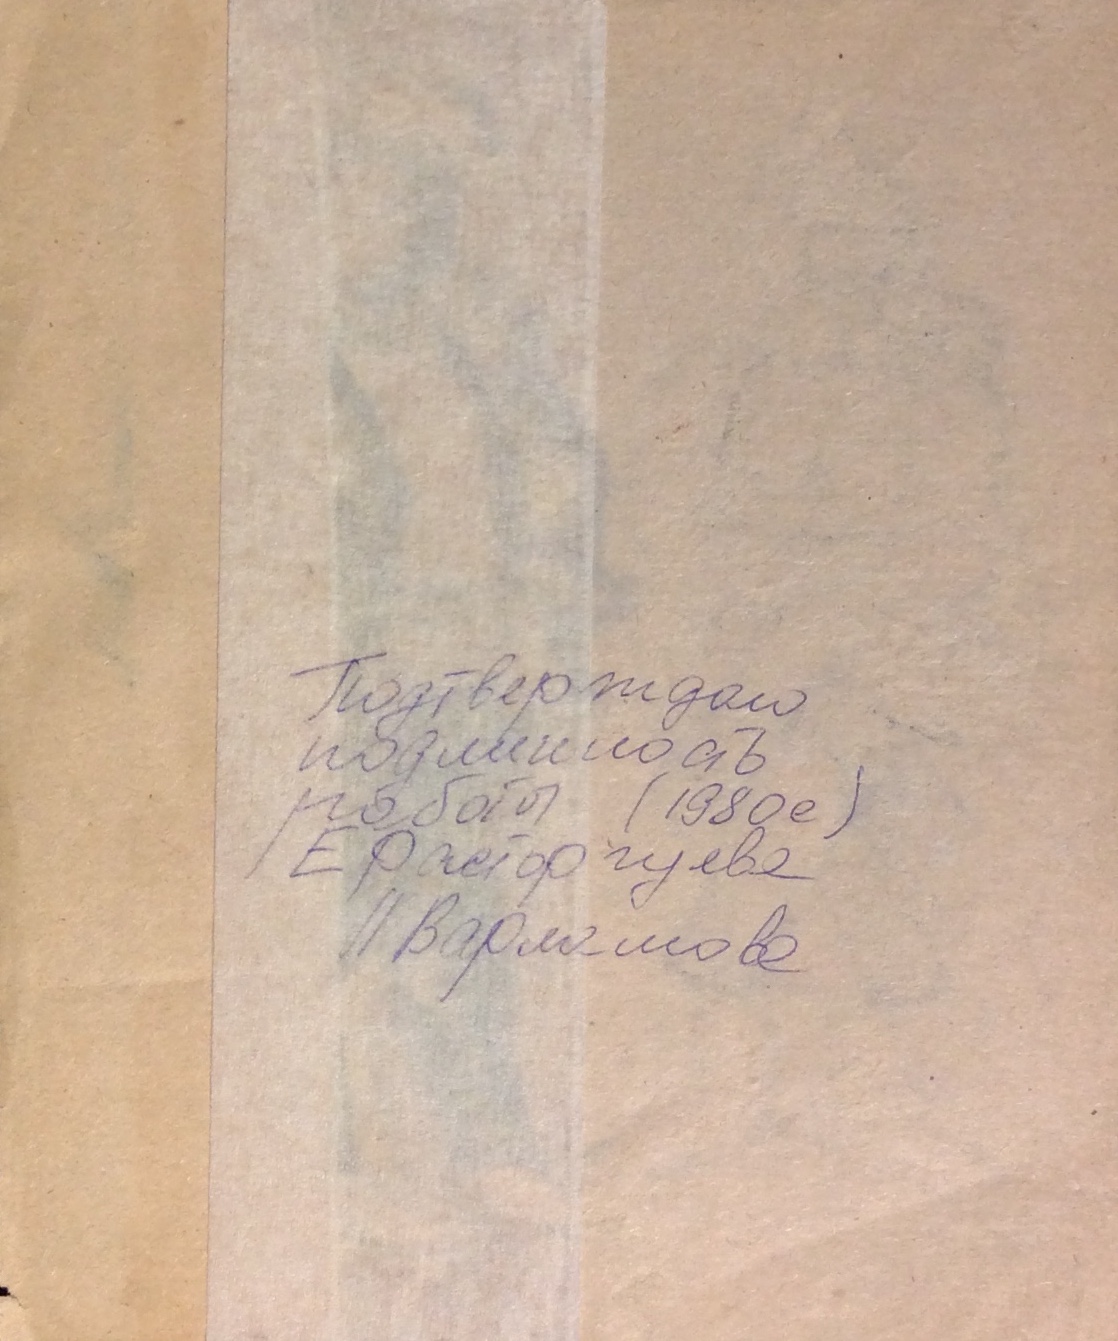 Подтверждаю
подлинность
работы (1980е)
Е Расторгуева
Варламова